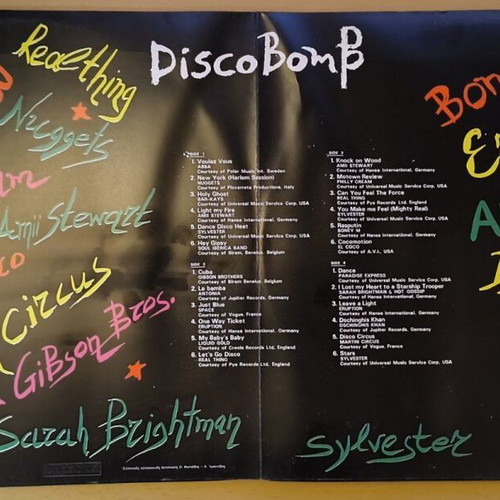 Real thing
DiscoBomb
Nuggets
Bon
Amii Stewart
Circus
Gibson Bros.
Sarah Brightman
Sylvester
SIDE 1
1. Voulez Vous
ABBA
Courtesy of Polar Music Int. Sweden
2. New York (Harlem Session)
NUGGETS
Courtesy of Piccarreta Productions, Italy
3. Holy Ghost
BAR-KAYS
Courtesy of Universal Music Service Corp. USA
4. Light my Fire
AMII STEWART
Courtesy of Hansa International, Germany
5. Dance Disco Heat
SYLVESTER
Courtesy of Universal Music Service Corp. USA
6. Hey Gipsy
SOUL IBERICA BAND
Courtesy of Biram, Benelux, Belgium
SIDE 2
1. Cuba
GIBSON BROTHERS
Courtesy of Biram Benelux, Belgium
2. La bamba
ANTONIA
Courtesy of Jupiter Records, Germany
3. Just Blue
SPACE
Courtesy of Vogue, France
4. One Way Ticket
ERUPTION
Courtesy of Hansa International, Germany
5. My Baby's Baby
LIQUID GOLD
Courtesy of Creole Records Ltd, England
6. Let's Go Disco
REAL THING
Courtesy of Pye Records Ltd, England
SIDE 3
1. Knock on Wood
AMII STEWART
Courtesy of Hansa International, Germany
2. Motown Review
PHILLY CREAM
Courtesy of Universal Music Service Corp. USA
3. Can You Feel The Force
REAL THING
Courtesy of Pye Records Ltd, England
4. You Make me Feel (Mighty Real)
SYLVESTER
Courtesy of Universal Music Service Corp. USA
5. Rasputin
BONEY M
Courtesy of Hansa International, Germany
6. Cocomotion
EL COCO
Courtesy of A.V.I., USA
SIDE 4
1. Dance
PARADISE EXPRESS
Courtesy of Universal Music Service Corp. USA
2. I Lost my Heart to a Starship Trooper
SARAH BRIGHTMAN & HOT GOSSIP
Courtesy of Hansa International, Germany
3. Leave a Light
ERUPTION
Courtesy of Hansa International, Germany
4. Dschinghis Khan
DSCHINGHIS KHAN
Courtesy of Jupiter Records, Germany
5. Disco Circus
MARTIN CIRCUS
Courtesy of Vogue, France
6. Stars
SYLVESTER
Courtesy of Universal Music Service Corp. USA